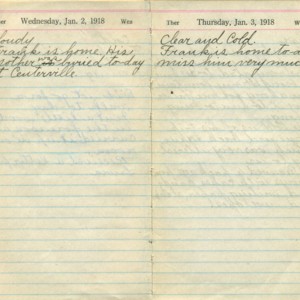 Wednesday, Jan. 2, 1918 Wea
loudy
Frank is home. His
mother "K" buried to-day
t Centerville.
Ther Thursday, Jan. 3, 1918 Wea
Clear and Cold
Frank is home to-d
miss hime very much